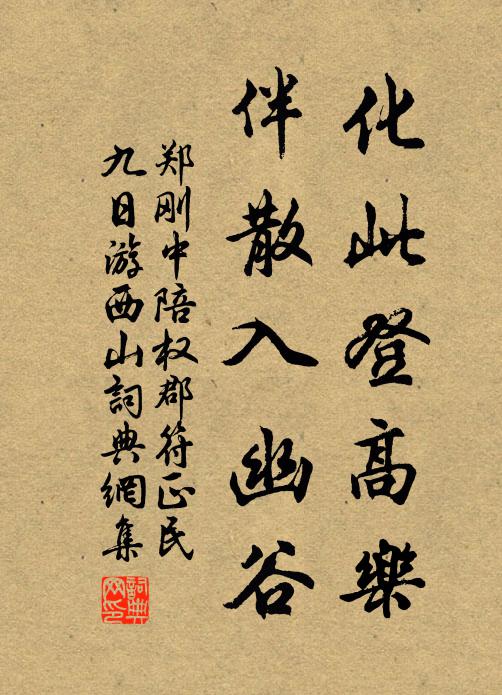 化此登高樂
伴散入幽谷
郑刚中陪权郡符正民
九日游西山詞典網集
詞典
网印